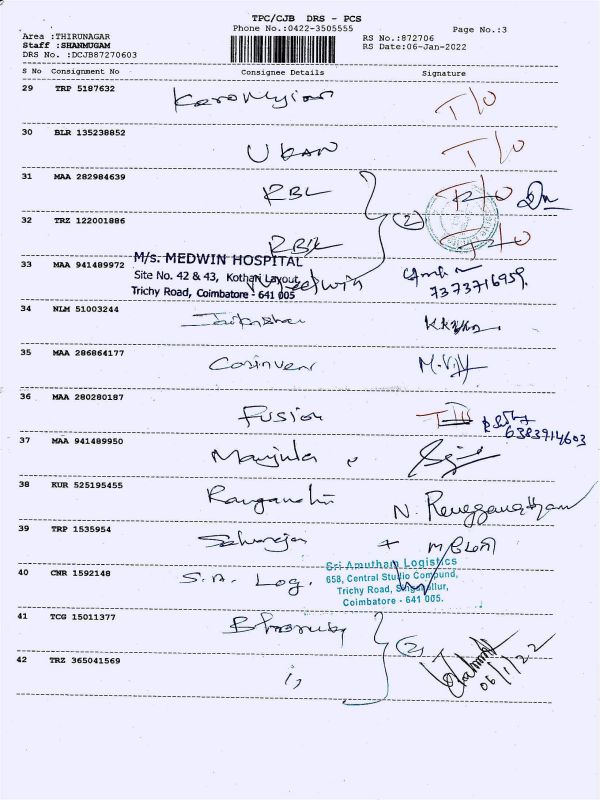 TPC/CJB DRS - PCS
Phone No.:0422-3505555
Page No.:3
Area :THIRUNAGAR
Staff :SHANMUGAM
DRS No. :DCJB87270603
RS No.:872706
RS Date:06-Jan-2022
S No Consignment No Consignee Details Signature
29 TRP 5187632
T/O
30 BLR 135238852
UKAN T/O
31 MAA 282984639
RBL T/O
32 TRZ 122001886
(2)
RBL T/O
33 MAA 941489972
M/s. MEDWIN HOSPITAL
Site No. 42 & 43, Kothari Layout,
Trichy Road, Coimbatore - 641 005
Medwin
7373716959
34 NLM 51003244
35 MAA 286864177
36 MAA 280280187
Fusion
6383914603
37 MAA 941489950
Manjula
38 KUR 525195455
Ranganathan N. Rengganatham
39 TRP 1535954
40 CNR 1592148
S.A. Log.
Sri Amutham Logistics
658, Central Studio Compund,
Trichy Road, Singanallur,
Coimbatore - 641 005.
41 TCG 15011377
(2)
42 TRZ 365041569
06/1/22